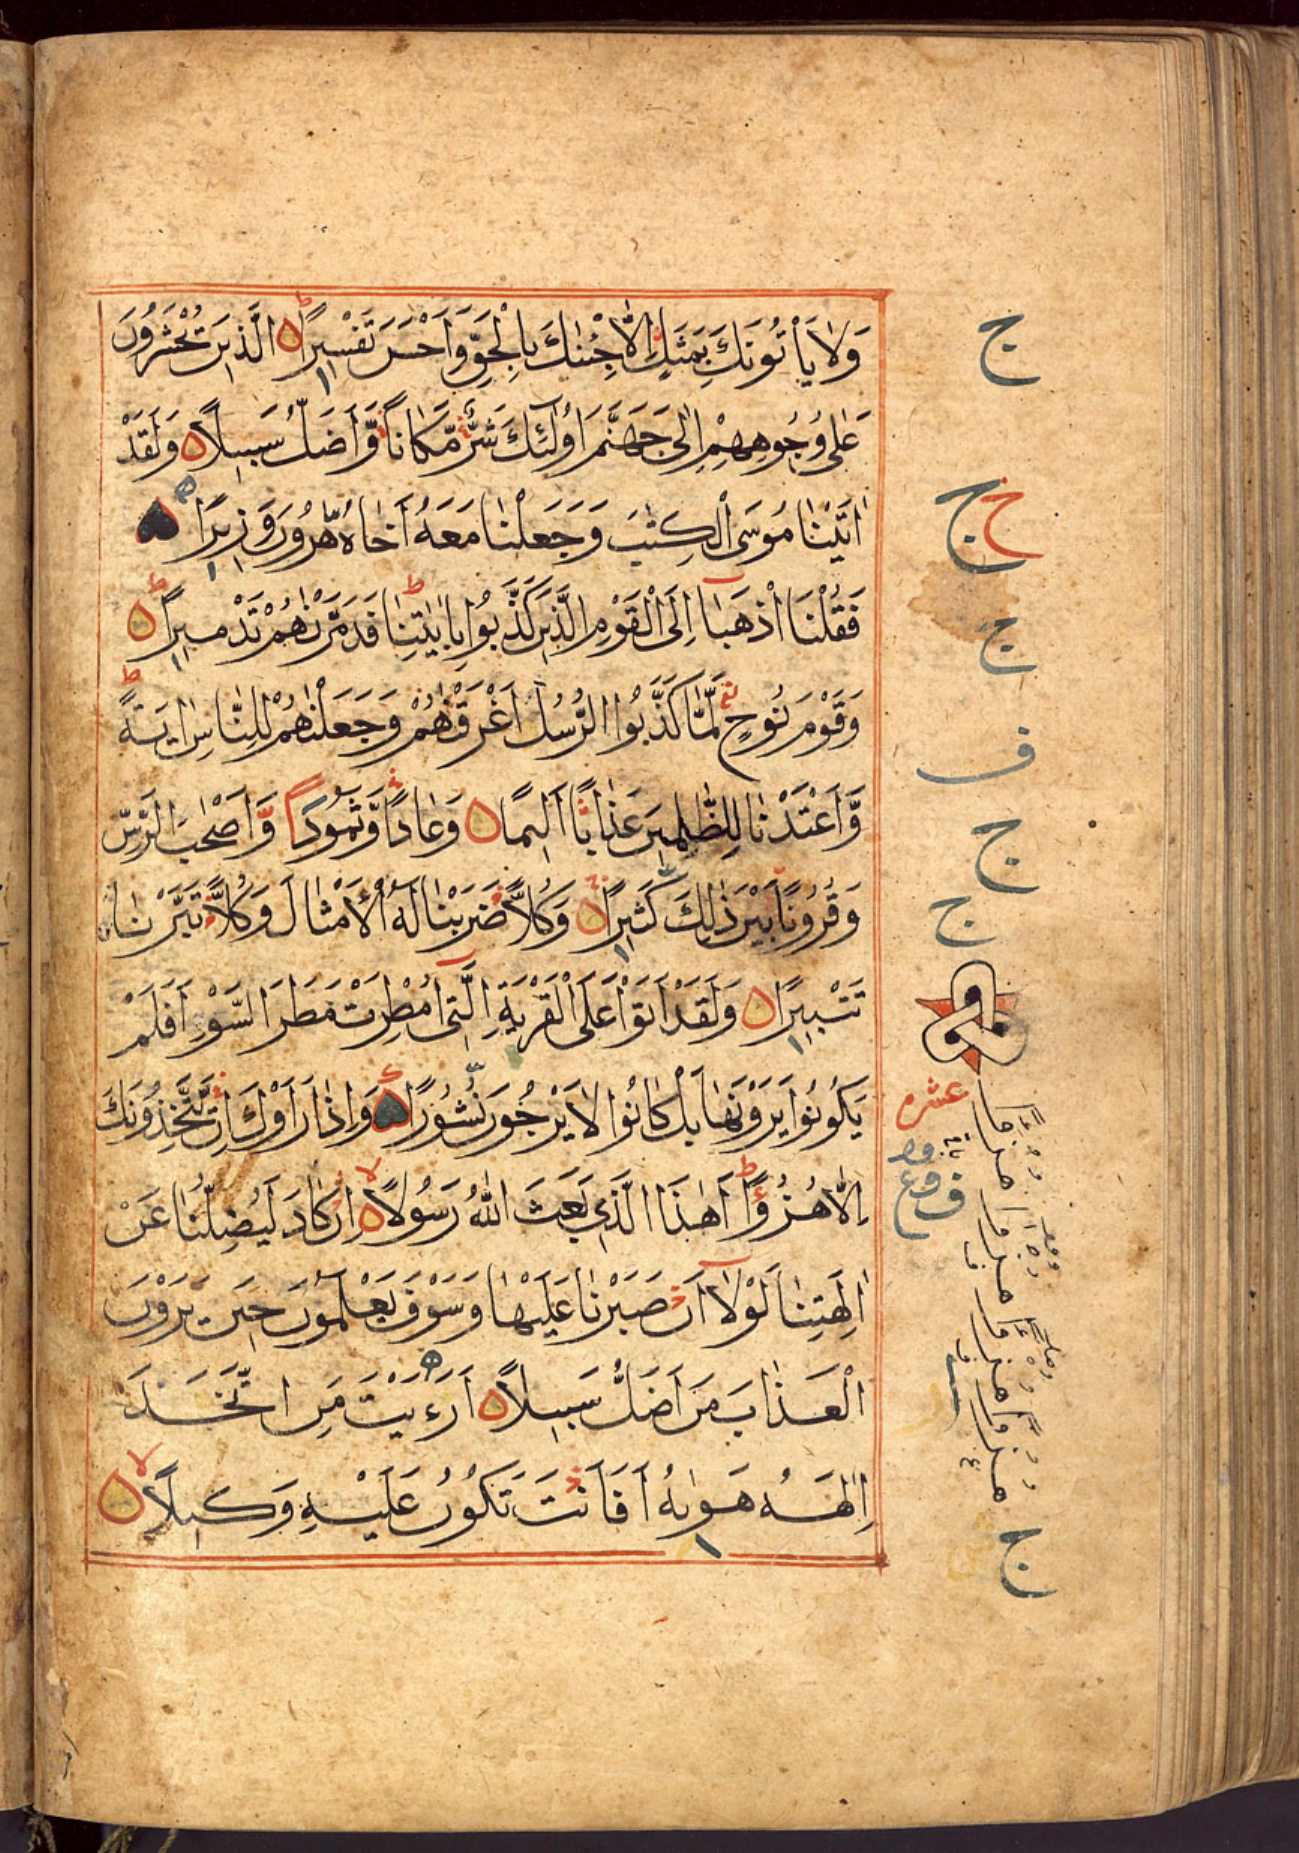 وَلَا يَأْتُونَكَ بِمَثَلٍ إِلَّا جِئْنٰكَ بِالْحَقِّ وَأَحْسَنَ تَفْسِيرًا ط الَّذِينَ يُحْشَرُونَ
عَلٰى وُجُوهِهِمْ إِلٰى جَهَنَّمَ أُولٰئِكَ شَرٌّ مَّكَانًا وَّأَضَلُّ سَبِيلًا وَلَقَدْ
اٰتَيْنَا مُوسَى الْكِتٰبَ وَجَعَلْنَا مَعَهُ أَخَاهُ هٰرُونَ وَزِيرًا
فَقُلْنَا اذْهَبَا إِلَى الْقَوْمِ الَّذِينَ كَذَّبُوا بِاٰيٰتِنَا ط فَدَمَّرْنٰهُمْ تَدْمِيرًا ط
وَقَوْمَ نُوحٍ لَّمَّا كَذَّبُوا الرُّسُلَ أَغْرَقْنٰهُمْ وَجَعَلْنٰهُمْ لِلنَّاسِ اٰيَةً ط
وَّأَعْتَدْنَا لِلظّٰلِمِينَ عَذَابًا أَلِيمًا وَعَادًا وَّثَمُودَا وَّأَصْحٰبَ الرَّسِّ
وَقُرُونًا بَيْنَ ذٰلِكَ كَثِيرًا وَكُلًّا ضَرَبْنَا لَهُ الْأَمْثَالَ وَكُلًّا تَبَّرْنَا
تَتْبِيرًا وَلَقَدْ أَتَوْا عَلَى الْقَرْيَةِ الَّتِي أُمْطِرَتْ مَطَرَ السَّوْءِ أَفَلَمْ
يَكُونُوا يَرَوْنَهَا بَلْ كَانُوا لَا يَرْجُونَ نُشُورًا وَإِذَا رَأَوْكَ إِنْ يَّتَّخِذُونَكَ
إِلَّا هُزُؤًا ط أَهٰذَا الَّذِي بَعَثَ اللّٰهُ رَسُولًا لا إِنْ كَادَ لَيُضِلُّنَا عَنْ
اٰلِهَتِنَا لَوْلَا أَنْ صَبَرْنَا عَلَيْهَا وَسَوْفَ يَعْلَمُونَ حِينَ يَرَوْنَ
الْعَذَابَ مَنْ أَضَلُّ سَبِيلًا أَرَءَيْتَ مَنِ اتَّخَذَ
إِلٰهَهُ هَوٰىهُ أَفَأَنْتَ تَكُونُ عَلَيْهِ وَكِيلًا لا
ج
ج ج
ج
ف
ج
ج
عشره
ج